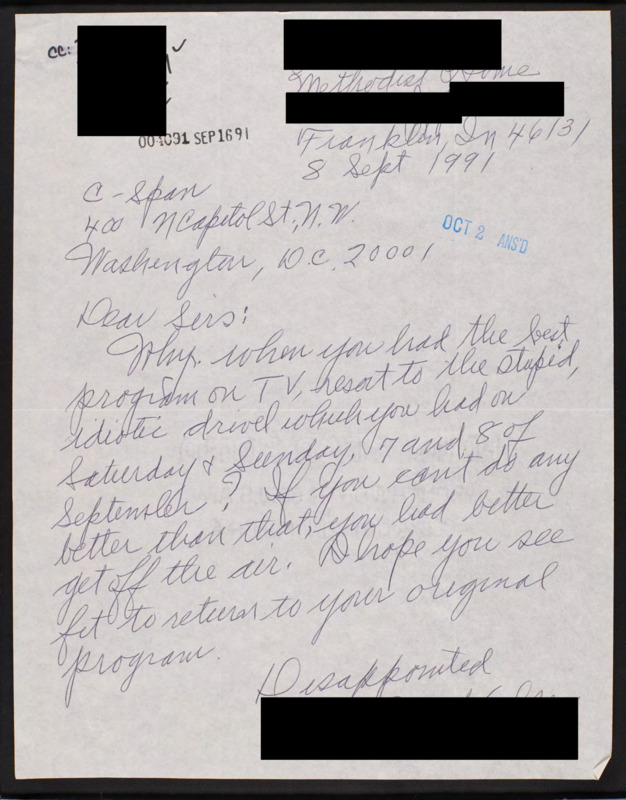 cc:
Methodist Home
Franklin, In 46131
8 Sept 1991
004091 SEP1691
C-Span
400 N Capitol St, N.W.
Washington, D.C. 20001
OCT 2 ANS'D
Dear Sirs:
Why, when you had the best
program on TV, resort to the stupid,
idiotic drivel which you had on
Saturday & Sunday, 7 and 8 of
September? If you can't do any
better than that, you had better
get off the air. I hope you see
fit to return to your original
program.
Disappointed